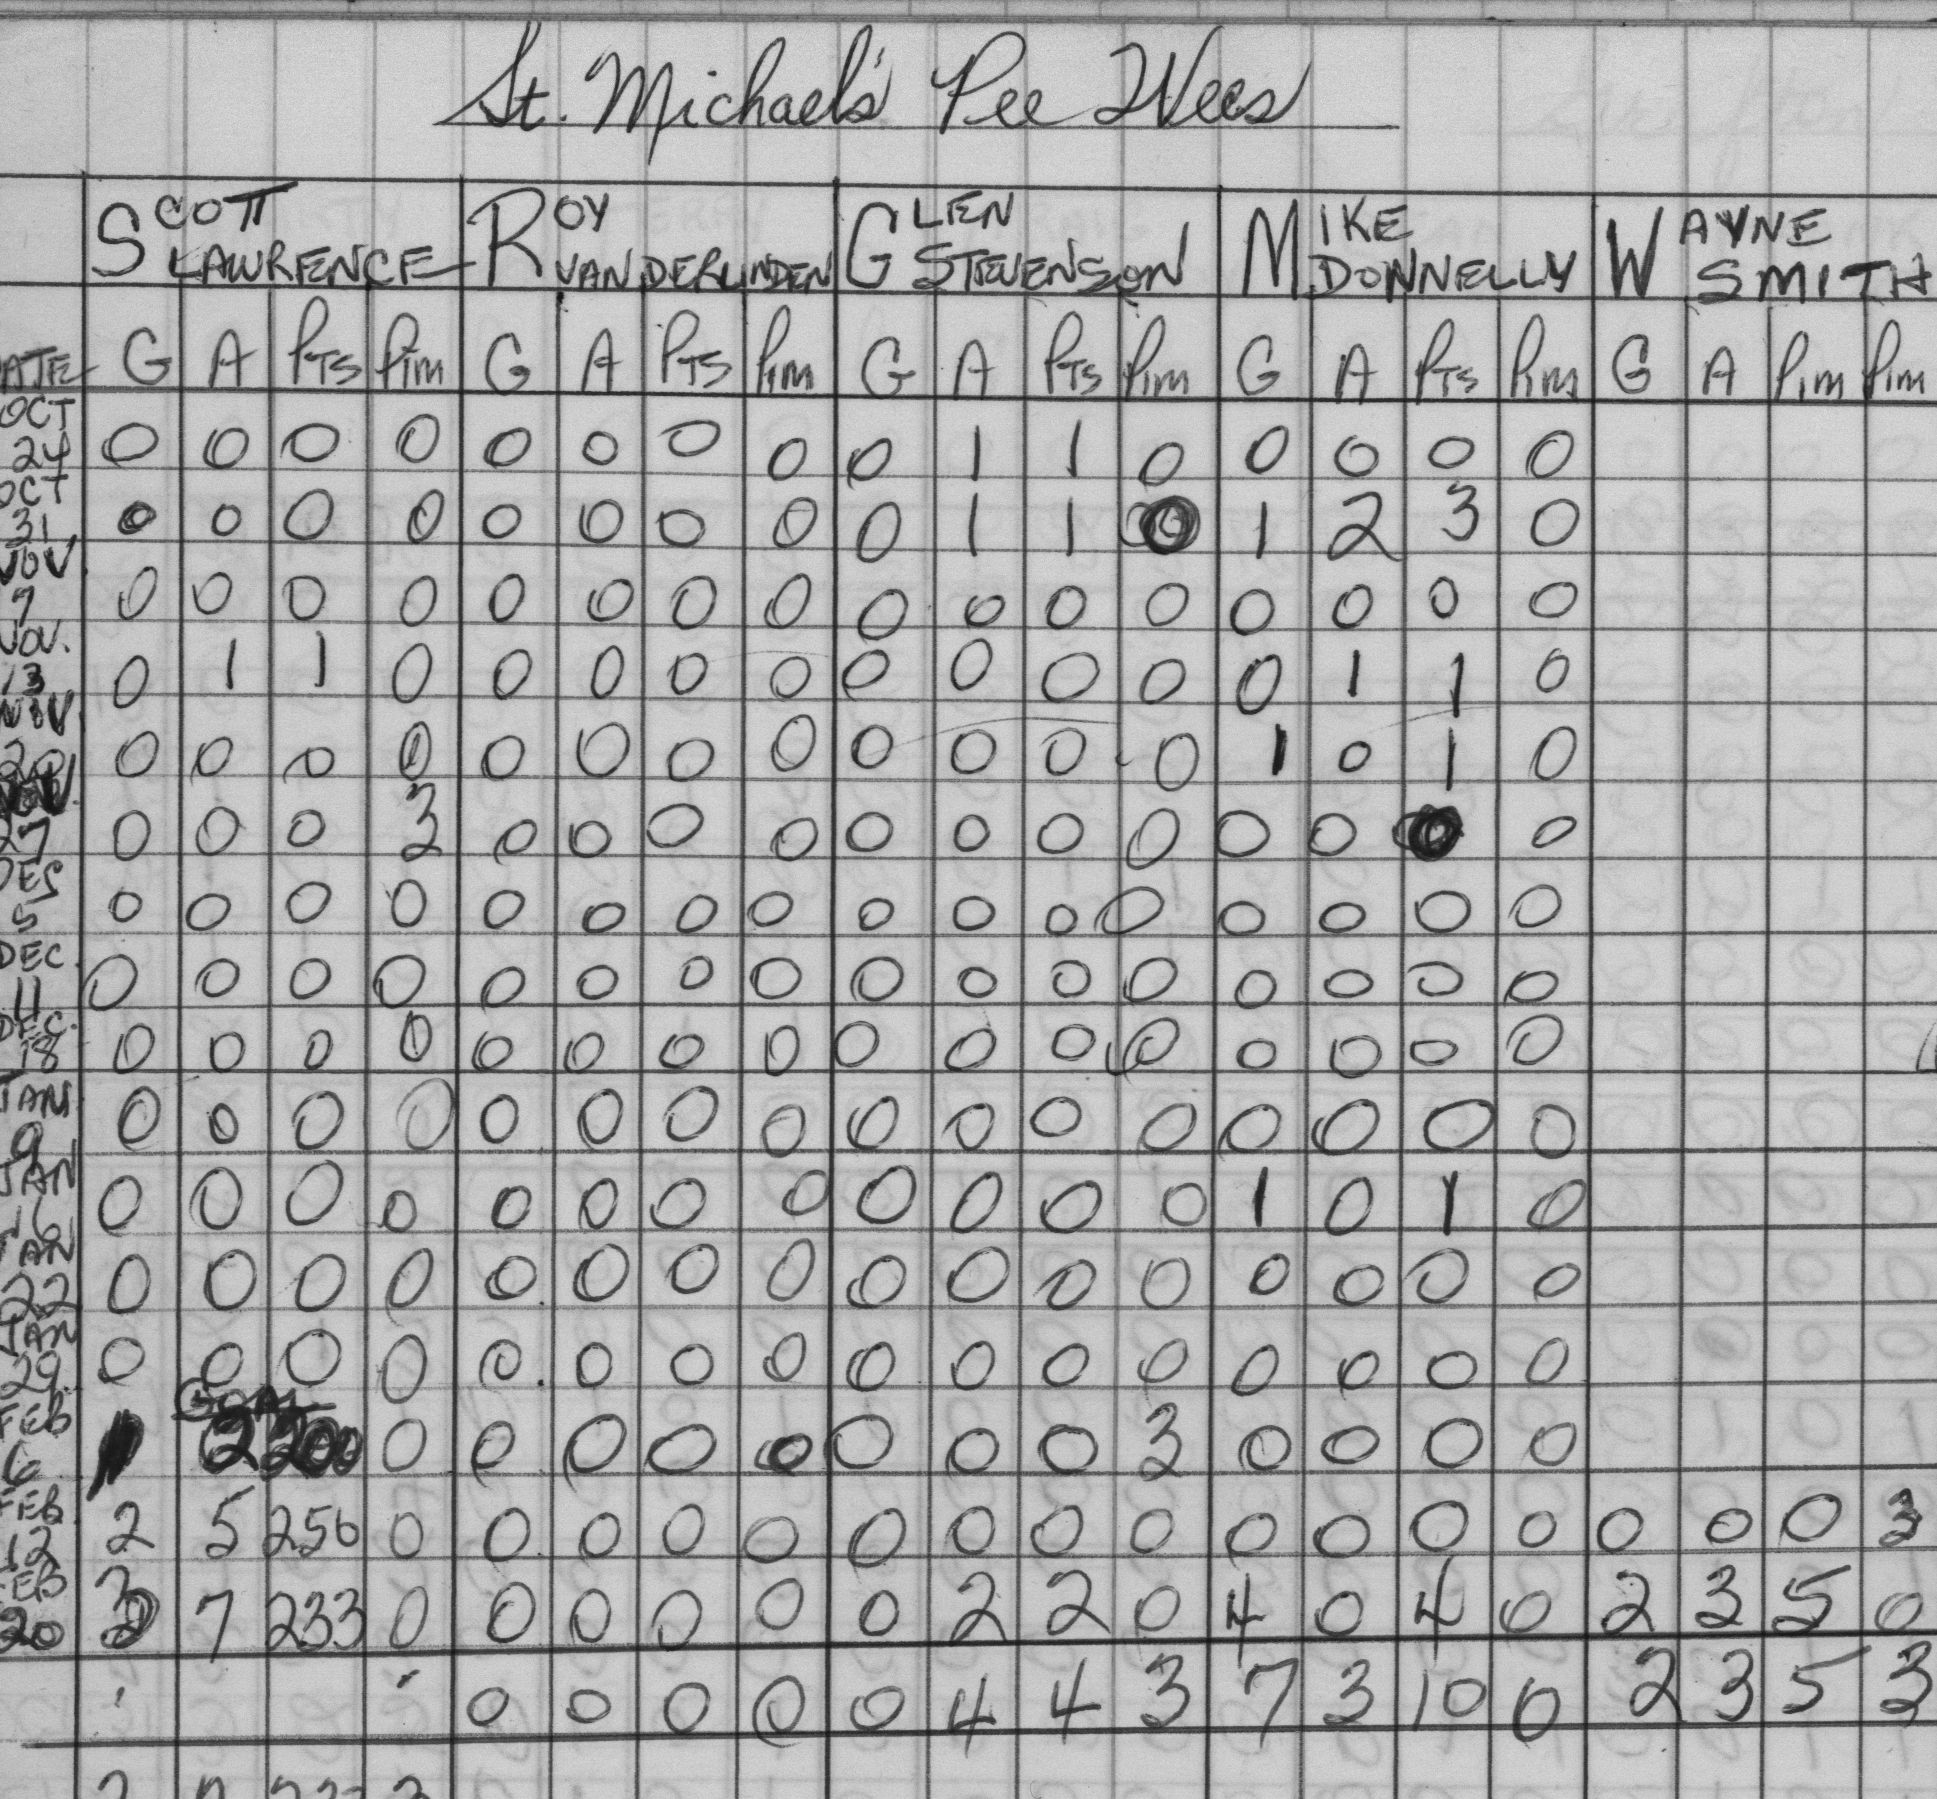 St. Michael's Pee Wees
SCOTT LAWRENCE ROY VANDERLINDEN GLEN STEVENSON MIKE DONNELLY WAYNE SMITH
ATE G A PTS Pim G A PTS Pim G A PTS Pim G A PTS Pim G A Pim Pim
OCT 24 0 0 0 0 0 0 0 0 0 1 1 0 0 0 0 0
OCT 31 0 0 0 0 0 0 0 0 0 1 1 0 1 2 3 0
NOV 7 0 0 0 0 0 0 0 0 0 0 0 0 0 0 0 0
NOV. 13 0 1 1 0 0 0 0 0 0 0 0 0 0 1 1 0
NOV 20 0 0 0 0 0 0 0 0 0 0 0 0 1 0 1 0
NOV. 27 0 0 0 3 0 0 0 0 0 0 0 0 0 0 0 0
DES 5 0 0 0 0 0 0 0 0 0 0 0 0 0 0 0 0
DEC. 11 0 0 0 0 0 0 0 0 0 0 0 0 0 0 0 0
DEC. 18 0 0 0 0 0 0 0 0 0 0 0 0 0 0 0 0
JAN 9 0 0 0 0 0 0 0 0 0 0 0 0 0 0 0 0
JAN 16 0 0 0 0 0 0 0 0 0 0 0 0 1 0 1 0
JAN 22 0 0 0 0 0 0 0 0 0 0 0 0 0 0 0 0
JAN 29 0 0 0 0 0 0 0 0 0 0 0 0 0 0 0 0
GOAL
FEB 6 1 2 200 0 0 0 0 0 0 0 0 3 0 0 0 0
FEB 12 2 5 250 0 0 0 0 0 0 0 0 0 0 0 0 0 0 0 0 3
FEB 20 3 7 233 0 0 0 0 0 0 2 2 0 4 0 4 0 2 3 5 0
0 0 0 0 0 4 4 3 7 3 10 0 2 3 5 3